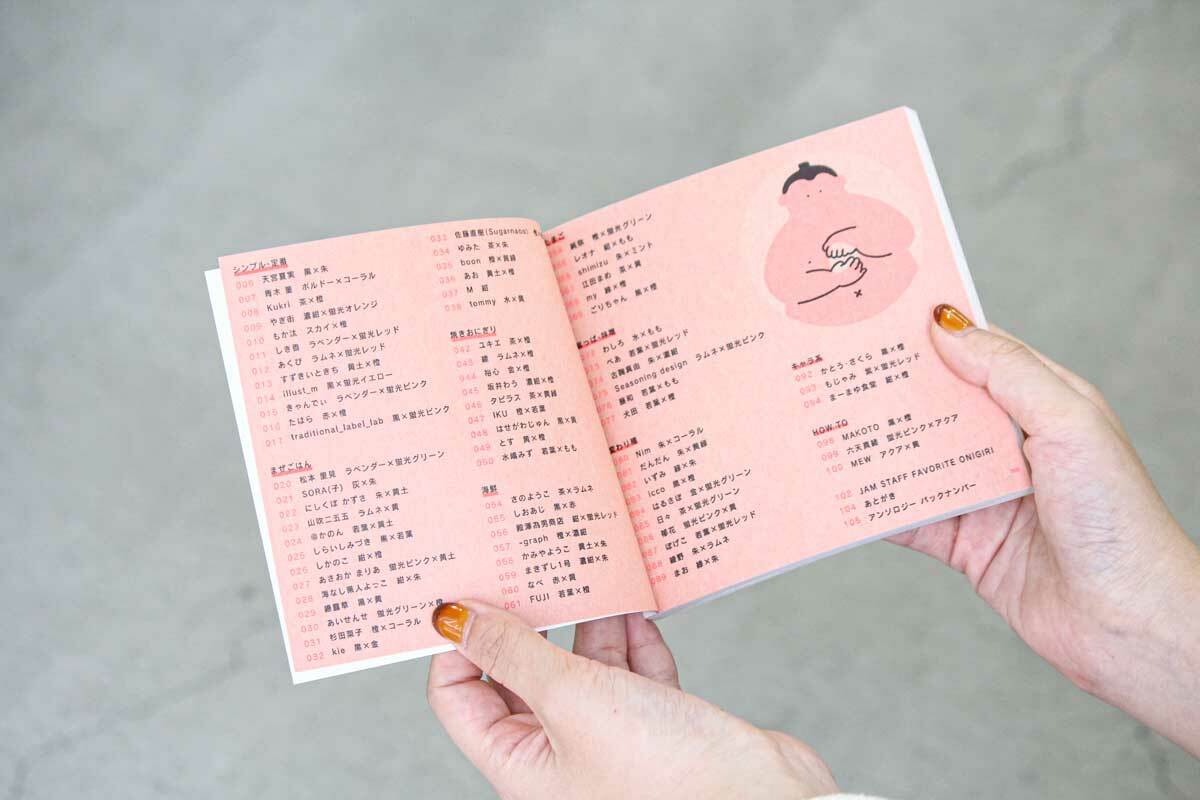 シンプル・定番
006 天宮夏実 黒×朱
007 青木 薫 ボルドー×コーラル
008 Kukri 茶×橙
009 やぎ街 濃紺×蛍光オレンジ
010 もか汰 スカイ×橙
011 しき香 ラベンダー×蛍光レッド
012 あくび ラムネ×蛍光レッド
013 すずきいときち 黄土×橙
014 illust_m 黒×蛍光イエロー
015 きゃんでぃ ラベンダー×蛍光ピンク
016 たはら 赤×橙
017 traditional_label_lab 黒×蛍光ピンク
まぜごはん
020 松本 里見 ラベンダー×蛍光グリーン
021 SORA(子) 灰×朱
022 にしくぼ かずさ 朱×黄土
023 山吹二五五 ラムネ×黄
024 ゆかのん 若葉×黄土
025 しらいしみづき 黒×若葉
026 しかのこ 紺×橙
027 あさおか まりあ 蛍光ピンク×黄土
028 海なし県人よっこ 紺×朱
029 ×黄
030 あいせんせ 蛍光グリーン×橙
031 杉田菜子 橙×コーラル
032 kie 黒×金
033 佐藤直樹(Sugarnaoki)
034 ゆみた 茶×朱
035 boon 橙×黄緑
036 あお 黄土×橙
037 M 紺
038 tommy 水×黄
焼きおにぎり
042 ユキエ 茶×橙
043 綾 ラムネ×橙
044 裕心 金×橙
045 坂井わう 濃紺×橙
046 タピラス 茶×黄緑
047 IKU 橙×若葉
048 はせがわじゅん 黒×黄
049 とす 黄×橙
050 水嶋みず 若葉×もも
海鮮
054 さのようこ 茶×ラムネ
055 しおあじ 黒×赤
056 殿澤為男商店 紺×蛍光レッド
057 -graph 橙×濃紺
058 かみやようこ 黄土×朱
059 まきずし1号 濃紺×朱
060 なべ 赤×黄
061 FUJI 若葉×橙
純奈 橙×蛍光グリーン
レオナ 紺×もも
shimizu 朱×ミント
江田まめ 茶×黄
my 緑×橙
ごりちゃん 黒×橙
わしろ 水×もも
ぺあ 若葉×蛍光レッド
古舞真由 朱×濃紺
Seasoning design ラムネ×蛍光ピンク
藤和 若葉×もも
犬田 若葉×橙
変わり種
Nim 朱×コーラル
だんだん 朱×黄緑
いずみ 緑×朱
icco 黒×橙
はるさぼ 金×蛍光グリーン
日々 茶×蛍光グリーン
琴花 蛍光ピンク×黄
ぽげこ 若葉×蛍光レッド
綾野 朱×ラムネ
089 まお 緑×朱
キャラ系
092 かとう・さくら 黒×橙
093 もじゃみ 紫×蛍光レッド
094 まーまゆ食堂 紺×橙
HOW TO
098 MAKOTO 黒×橙
099 六天真緒 蛍光ピンク×アクア
100 MEW アクア×黄
102 JAM STAFF FAVORITE ONIGIRI
104 あとがき
105 アンソロジー バックナンバー